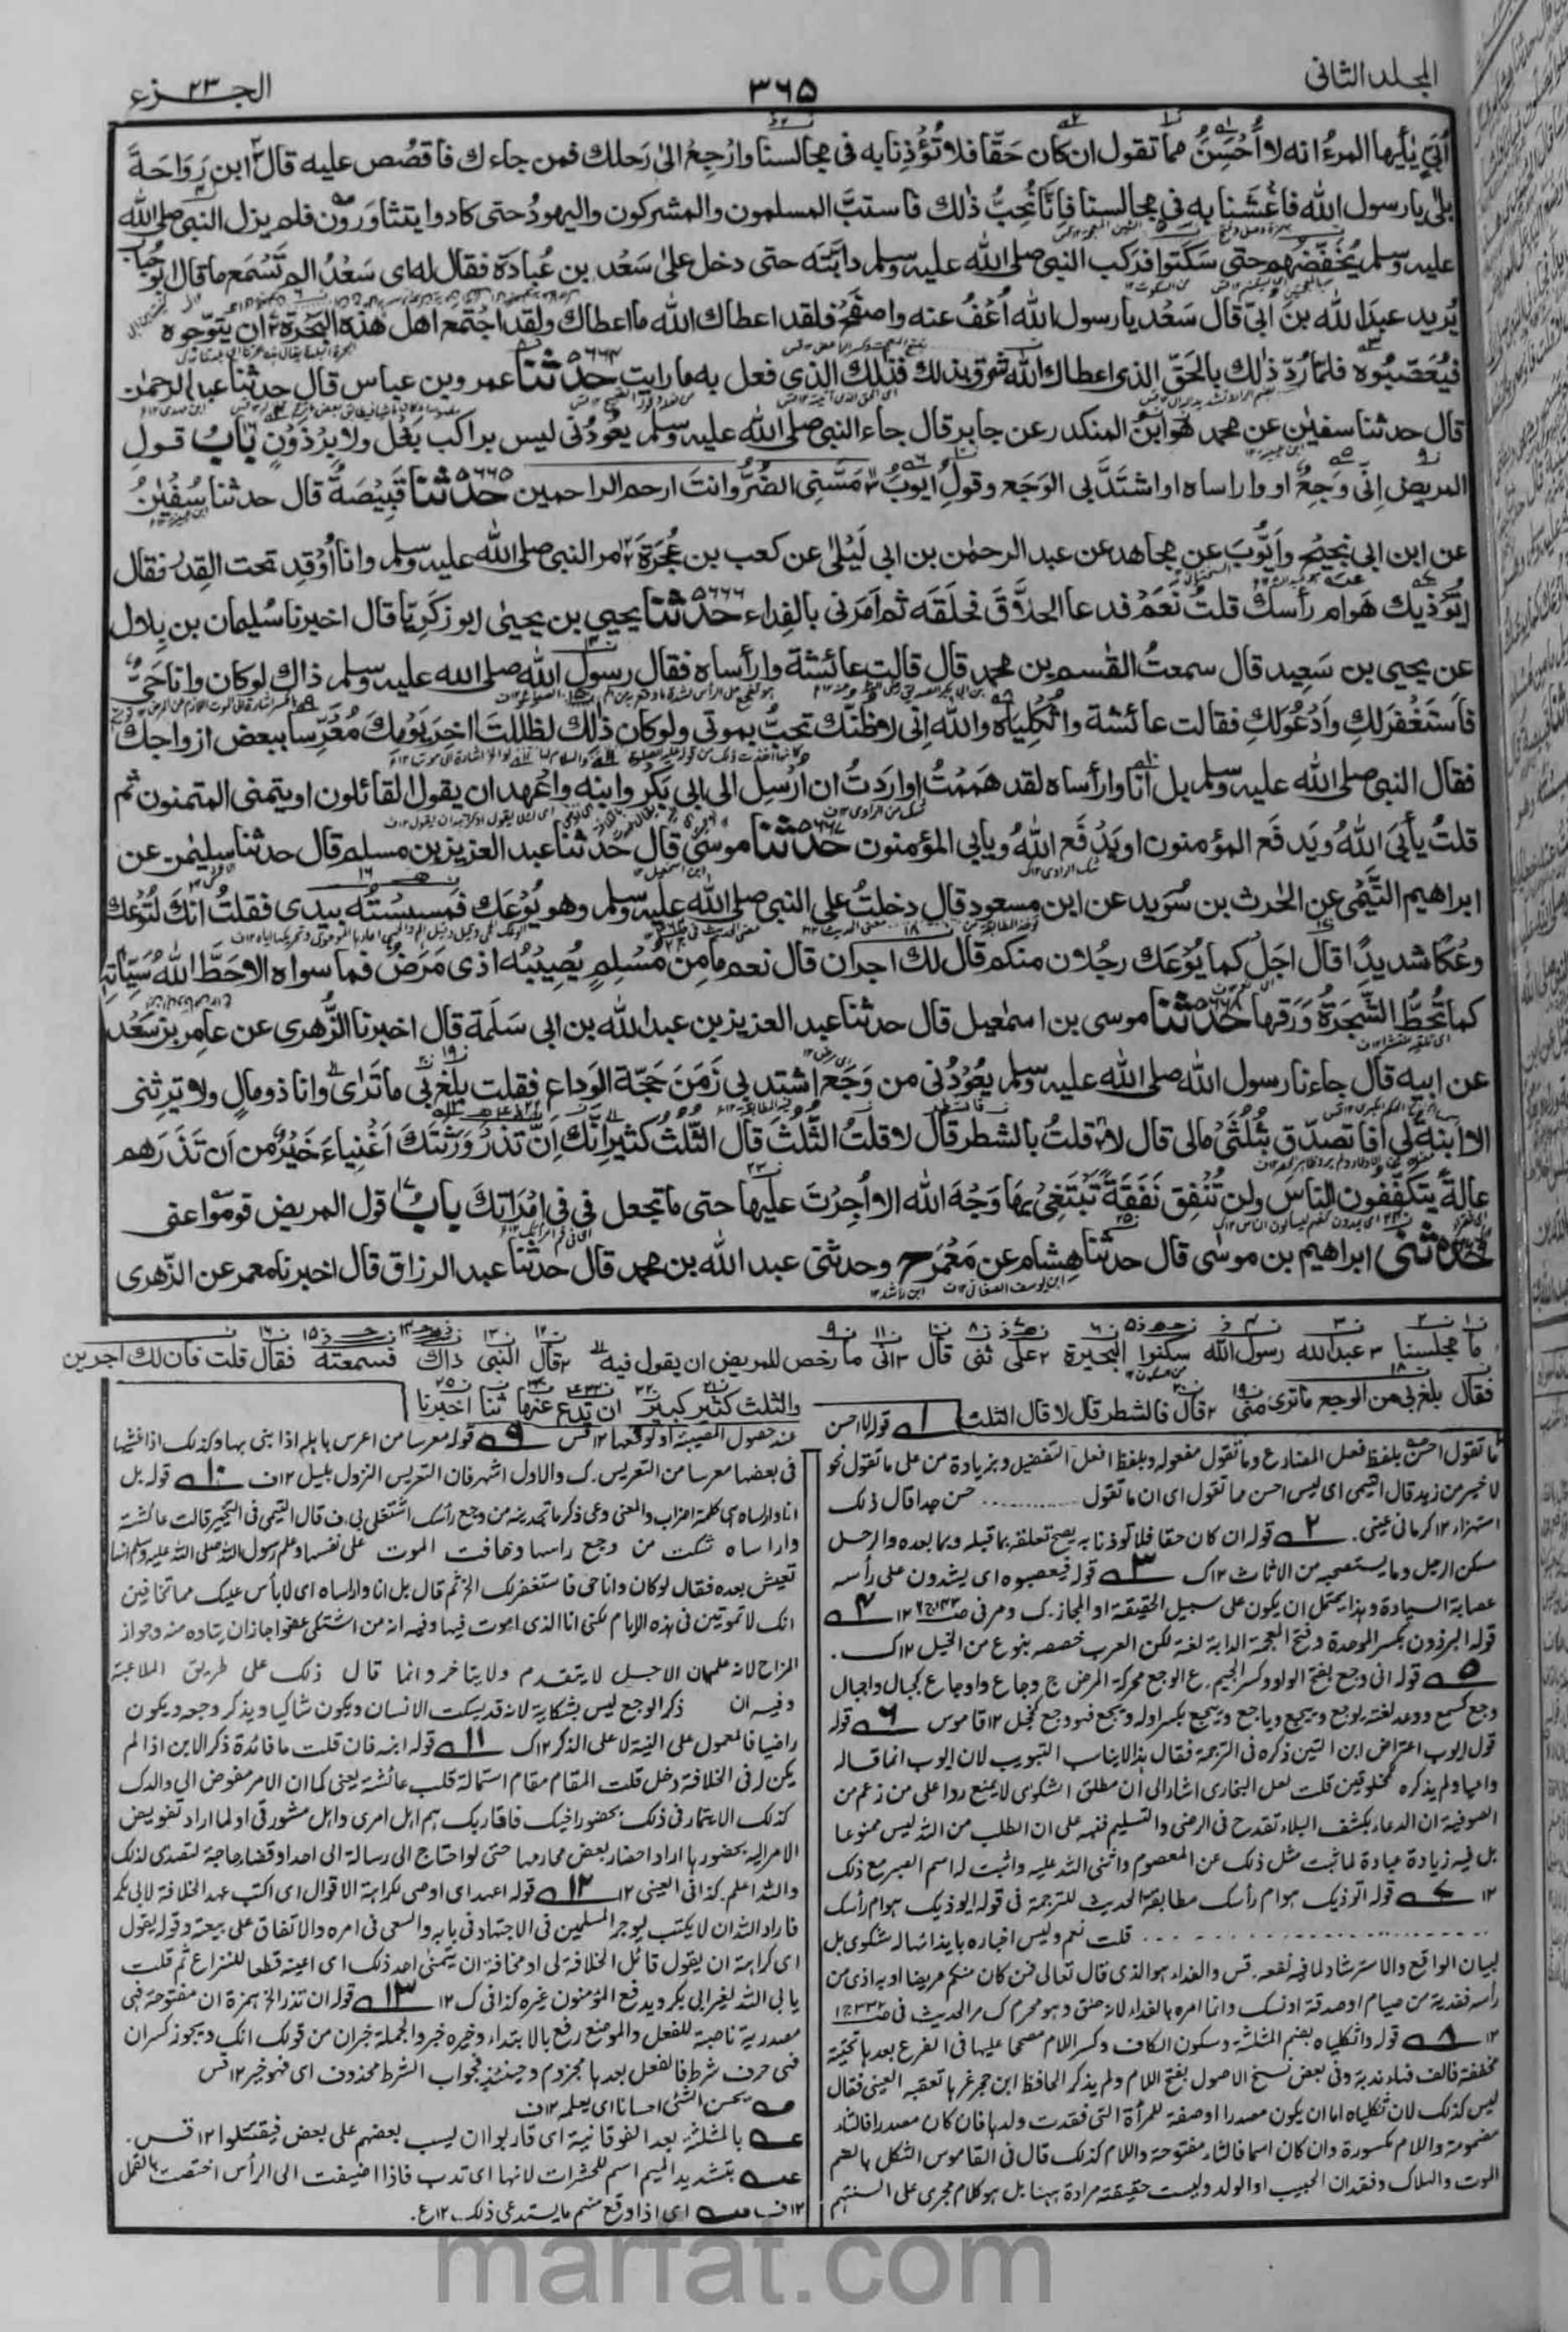 المجلد الثانی
٣٦٥
الجزء ٢٣
اُبَیّ یٰأیها المرءُ انه لا اَحْسَنَ مما تقول ان کان حَقّا فلا تُؤْذِنا به فی مجالسنا وارْجِعْ الیٰ رَحلك فمن جاءك فاقصُص علیه قال ابن رَوَاحَةَ
بلٰی یا رسول الله فاغْشَنا به فی مجالسنا فاِنَّا نُحِبُّ ذٰلك فاستبَّ المسلمون والمشرکون والیهودُ حتی کادوا یتثاوَرون فلم یزل النبی صلی الله
علیه وسلم یُخَفِّضُهم حتی سَکَتوا فرکب النبی صلی الله علیه وسلم دابّتَه حتی دخل علیٰ سَعْد بن عُبادَة فقال له ای سَعْدُ الم تَسْمَع ما قال ابو حُباب
یُرید عبدَ الله بنَ اُبیّ قال سَعْد یا رسول الله اُعْفُ عنه واصفَحْ فلقد اعطاك الله ما اعطاك ولقد اجْتمع اهل هٰذه البَحْرَة ان یتوّجوه
فیُعَصِّبُوه فلمّا رُدّ ذٰلك بالحَقّ الذی اعطاك الله شَرِقَ بذلك فذٰلك الذی فعل به ما رایت ٥٦٦٤ حدثنا عمرو بن عباس قال حدثنا عبد الرحمٰن
قال حدثنا سفیٰن عن محمد هو ابن المنکدر عن جابر قال جاء النبی صلی الله علیه وسلم یعُودُنی لیس براکب بَغْل ولا بِرْذَوْنٍ بابُ قول
المریض اِنّی وَجِعٌ او وا راساه او اشتَدَّ بی الوَجَع وقولِ ایوب مَسَّنِی الضُّرُّ وانتَ ارحم الراحمین ٥٦٦٥ حدثنا قَبِیْصَةُ قال حدثنا سُفْیٰنُ
عن ابن ابی نجیْح واَیُّوبَ عن مجاهد عن عبد الرحمٰن بن ابی لَیْلیٰ عن کعب بن عُجْرَةَ مر النبی صلی الله علیه وسلم وانا اُوْقِد تحت القِدْر فقال
ایُؤذیك هَوام رأسك قلتُ نَعَمْ فدعا الحلّاقَ فحَلَقَه ثم اَمَرَنی بالفِداء ٥٦٦٦ حدثنا یحیی بن یحییٰ ابو زکریّا قال اخبرنا سُلیمان بن بلال
عن یحیی بن سَعِید قال سمعتُ القٰسم بن محمد قال قالت عائشة وا رأساه فقال رسول الله صلی الله علیه وسلم ذاك لو کان وانا حَیٌّ
فاَستَغْفرَ لكِ واَدْعُوَ لكِ فقالت عائشة وا ثُکْلِیاه والله اِنی لاَظنّك تحبُّ بموتی ولو کان ذٰلك لظللتَ اٰخر یَوْمِكَ مُعَرِّسا ببعض ازواجك
فقال النبی صلی الله علیه وسلم بل انا وا رأساه لقد هَمَمْتُ او اَردتُ ان اُرْسِلَ الی ابی بَکْر وابنِه واَعْهَد ان یقول القائلون او یتمنی المتمنون ثم
قلتُ یأبَی اللهُ ویَدفَع المؤمنون او یَدْفَع اللهُ ویأبی المؤمنون ٥٦٦٧ حدثنا موسیٰ قال حدثنا عبد العزیز بن مسلم قال حدثنا سلیمٰن عن
ابراهیم التَّیْمی عن الحٰرث بن سُوَید عن ابن مسعود قال دخلتُ علی النبی صلی الله علیه وسلم وهو یُوْعَك فمَسِسْتُه بیدی فقلتُ انك لتُوْعَك
وَعْکًا شدیدًا قال اجَلْ کما یُوْعَك رجُلان منکم قال لك اجران قال نعم ما مِن مُسْلِمٍ یُصِیْبُه اذی مَرَضٌ فما سواه الا حَطَّ اللهُ سَیِّاٰتِه
کما تُحَطُّ الشَّجَرَةُ وَرَقَها ٥٦٦٨ حدثنا موسی بن اسمٰعیل قال حدثنا عبد العزیز بن عبد الله بن ابی سَلَمة قال اخبرنا الزُّهری عن عامر بن سَعْد
عن ابیه قال جاءنا رسول الله صلی الله علیه وسلم یعُوْدُنی من وَجَع اشتد بی زَمَنَ حَجّة الوَداع فقلت بلَغ بی ما تَرٰی وانا ذو مالٍ ولا یَرِثنی
الا ابنة لی افا تصدّق بثُلُثَیْ مالی قال لا قلتُ بالشطر قال لا قلتُ الثّلُثَ قال الثّلُث کثیر اِنَّك اِنْ تَذَرْ وَرَثَتَكَ اَغْنِیاءَ خَیْرٌ من اَن تَذَرَهم
عالةً یتکَفّفون الناس ولن تُنفِق نَفَقَةً تَبْتَغِیْ بها وَجْهَ الله الا اُجِرْتَ علیها حتی ما تجعل فی فی امْرَاَتِكَ بابُ قول المریض قوموا عنی
حدثنی ابراهیم بن موسٰی قال حدثنا هِشام عن مَعْمَر ح وحدثنی عبد الله بن محمد قال حدثنا عبد الرزاق قال اخبرنا معمر عن الزّهری
ما مجلسنا عبد الله رسول الله سکنوا البحیرة علی ثنی قال انی ما رخص للمریض ان یقول فیه قال النبی ذاك فسمعته فقال قلت فان لك اجرین
فقال بلغ بی من الوجع ما تری منی قال فالشطر قال لا قال الثلث
والثلث کثیر کبیر ان تدع عنها ثنا اخبرنا
١ قوله لا احسن
ما تقول احسن بلفظ فعل المضارع وما تقول مفعوله وبلفظ افعل التفضیل وبزیادة من علی ما تقول نحو
لا خیر من زید قال التیمی ای لیس احسن مما تقول ای ان ما تقول ........... حسن جدا قال ذلک
استهزاء ١٢ کرمانی عینی. ٢ قوله ان کان حقا فلا تؤذنا به یصح تعلقه بما قبله وبما بعده والرحل
مسکن الرجل وما یستصحبه من الاثاث ١٢ ک ٣ قوله فیعصبوه ای یشدون علی رأسه
عصابة السیادة وهذا یحتمل ان یکون علی سبیل الحقیقة او المجاز. ک ومر فی ٤
قوله البرذون بکسر الموحدة وفتح العجمة الدابة لغة لکن العرب خصصه بنوع من الخیل ١٢ ک.
٥ قوله انی وجع بفتح الواو وکسر الجیم. ع الوجع محرکة المرض ج وجاع واوجاع کجبال واجبال
وجع کسمع ووعد لغته یوجع وییجع ویاجع وییجع بکسر اوله ویجع فهو وجع کخجل ١٢ قاموس ٦ قوله
قول ایوب اعتراض ابن التین ذکره فی الترجمة فقال هذا لایناسب التبویب لان ایوب انما قاله
داعیا ولم یذکره لمخلوقین قلت لعل البخاری اشار الی ان مطلق الشکوی لا یمنع ردا علی من زعم من
الصوفیة ان الدعاء بکشف البلاء تقدح فی الرضی والتسلیم فنبه علی ان الطلب من الله لیس ممنوعا
بل فیه زیادة عبادة لما ثبت مثل ذلک عن المعصوم واثنی الله علیه واثبت له اسم الصبر مع ذلک
١٢ ٧ قوله اتؤذیک هوام رأسک مطابقة الحدیث للترجمة فی قوله ایؤذیک هوام رأسک
........... قلت نعم ولیس اخباره بایذائها له شکوی بل
لبیان الواقع والاسترشاد لما فیه نفعه. قس والفداء هو الذی قال تعالی فمن کان منکم مریضا او به اذی من
رأسه ففدیة من صیام او صدقة او نسک وانما امره بالفداء لانه حلق وهو محرم ک مر الحدیث فی
١٢ ٨ قوله واثکلیاه بضم المثلثة وسکون الکاف وکسر اللام مصححا علیها فی الفرع بعدها تحتیة
مخففة فالف فهاء ندبة وفی بعض نسخ الاصول بفتح اللام ولم یذکر الحافظ ابن حجر غیرها تعقبه العینی فقال
لیس کذلک لان ثکلیاه اما ان یکون مصدرا او صفة للمرأة التی فقدت ولدها فان کان مصدرا فالثاء
مضمومة واللام مکسورة وان کان اسما فالثاء مفتوحة واللام کذلک قال فی القاموس الثکل بالضم
الموت والهلاک وفقدان الحبیب او الولد ولیست حقیقته مرادة ههنا بل هو کلام یجری علی السنتهم
عند حصول المصیبة او توقعها ١٢ قس ٩ قوله معرسا من اعرس باهله اذا بنی بها وکذلک اذا غشیها
فی بعضها معرسا من التعریس. ک والاول اشهر فان التعریس النزول بلیل ١٢ ف ١٠ قوله بل
انا وا رأساه هی کلمة اضراب والمعنی دعی ذکر ما تجدینه من وجع رأسک اشتغلی بی. ف قال التیمی فی التحبیر قالت عائشة
وا راساه شکت من وجع راسها وخافت الموت علی نفسها وعلم رسول الله صلی الله علیه وسلم انها
تعیش بعده فقال لو کان وانا حی فاستغفر لک الخ ثم قال بل انا وا راساه ای لا بأس علیک مما تخافین
انک لا تموتین فی هذه الایام لکنی انا الذی اموت فیها وفیه انه من اشتکی عضوا جاز ان یتاوه منه وجواز
المزاح لانه علم ان الاجل لا یتقدم ولا یتاخر وانما قال ذلک علی طریق الملاعبة
وفیه ان ذکر الوجع لیس بشکایة لانه قد یسکت الانسان ویکون شاکیا ویذکر وجعه ویکون
راضیا فالمعمول علی النیة لا علی الذکر ١٢ ک ١١ قوله ابنه فان قلت ما فائدة ذکر الابن اذا لم
یکن له فی الخلافة دخل قلت المقام مقام استمالة قلب عائشة یعنی کما ان الامر مفوض الی والدک
کذلک الایتمار فی ذلک بحضور اخیک فاقاربک هم اهل امری واهل مشورتی او لما اراد تفویض
الامر الیه بحضورها اراد احضار بعض محارمها حتی لو احتاج الی رسالة الی احد او قضاء حاجة لتصدی لذلک
والله اعلم. کذا فی العینی ١٢ ١٢ قوله اعهد ای اوصی بکراهة الاقوال ای اکتب عهد الخلافة لابی بکر
فاراد الله ان لا یکتب لیوجر المسلمین فی الاجتهاد فی بابه والسعی فی امره والاتفاق علی بیعته وقوله یقول
ای کراهة ان یقول قائل الخلافة لی او مخافة ان یتمنی احد ذلک ای اعینه قطعا للنزاع ثم قلت
یابی الله لغیر ابی بکر ویدفع المؤمنون غیره کذا فی ک ١٢ ١٣ قوله ان تذر الخ بهمزة ان مفتوحة فهی
مصدریة ناصبة للفعل والموضع رفع بالابتداء وخیره خبر والجملة خبر ان من قولک انک ویجوز کسر ان
فهی حرف شرط فالفعل بعدها مجزوم وحینئذ فجواب الشرط محذوف ای فهو خیر ١٢ قس
یحسن الشیٔ احسانا ای یعلمه ١٢ ف
بالمثلثة بعد الفوقانیة ای قاربوا ان یسب بعضهم علی بعض فیقتتلوا ١٢ قس.
بتشدید المیم اسم للحشرات لانها ای تدب فاذا اضیفت الی الرأس اختصت بالقمل
١٢ ف ای اذا وقع منهم ما یستدعی ذلک ١٢ ع.
marfat.com